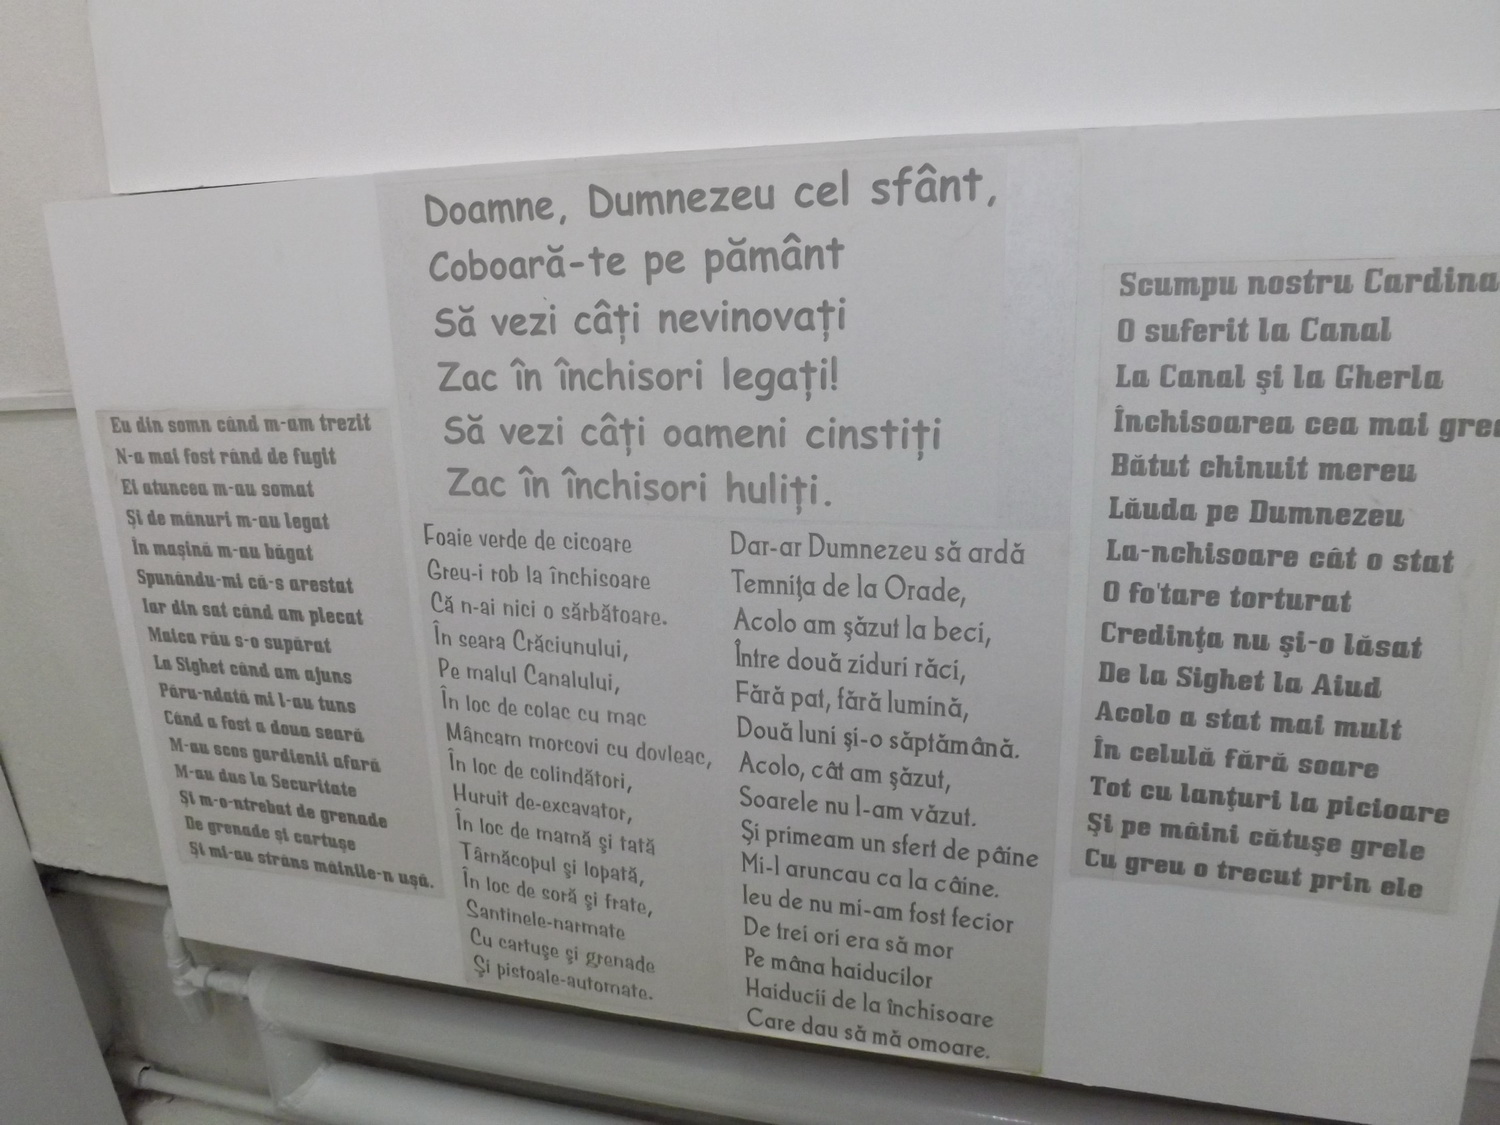 Eu din somn când m-am trezit
N-a mai fost rând de fugit
Ei atuncea m-au somat
Și de mânuri m-au legat
În mașină m-au băgat
Spunându-mi că-s arestat
Iar din sat când am plecat
Maica rău s-o supărat
La Sighet când am ajuns
Păru-ndată mi l-au tuns
Când a fost a doua seară
M-au scos gardienii afară
M-au dus la Securitate
Și m-o-ntrebat de grenade
De grenade și cartușe
Și mi-au strâns mâinile-n ușă.
Doamne, Dumnezeu cel sfânt,
Coboară-te pe pământ
Să vezi câți nevinovați
Zac în închisori legați!
Să vezi câți oameni cinstiți
Zac în închisori huliți.
Foaie verde de cicoare
Greu-i rob la închisoare
Că n-ai nici o sărbătoare.
În seara Crăciunului,
Pe malul Canalului,
În loc de colac cu mac
Mâncam morcovi cu dovleac,
În loc de colindători,
Huruit de-excavator,
În loc de mamă şi tată
Târnăcopul şi lopată,
În loc de soră şi frate,
Santinele-narmate
Cu cartuşe şi grenade
Şi pistoale-automate.
Dar-ar Dumnezeu să ardă
Temniţa de la Orade,
Acolo am şăzut la beci,
Între două ziduri răci,
Fără pat, fără lumină,
Două luni şi-o săptămână.
Acolo, cât am şăzut,
Soarele nu l-am văzut.
Şi primeam un sfert de pâine
Mi-l aruncau ca la câine.
Ieu de nu mi-am fost fecior
De trei ori era să mor
Pe mâna haiducilor
Haiducii de la închisoare
Care dau să mă omoare.
Scumpu nostru Cardina
O suferit la Canal
La Canal şi la Gherla
Închisoarea cea mai grea
Bătut chinuit mereu
Lăuda pe Dumnezeu
La-nchisoare cât o stat
O fo'tare torturat
Credinţa nu şi-o lăsat
De la Sighet la Aiud
Acolo a stat mai mult
În celulă fără soare
Tot cu lanţuri la picioare
Şi pe mâini cătuşe grele
Cu greu o trecut prin ele